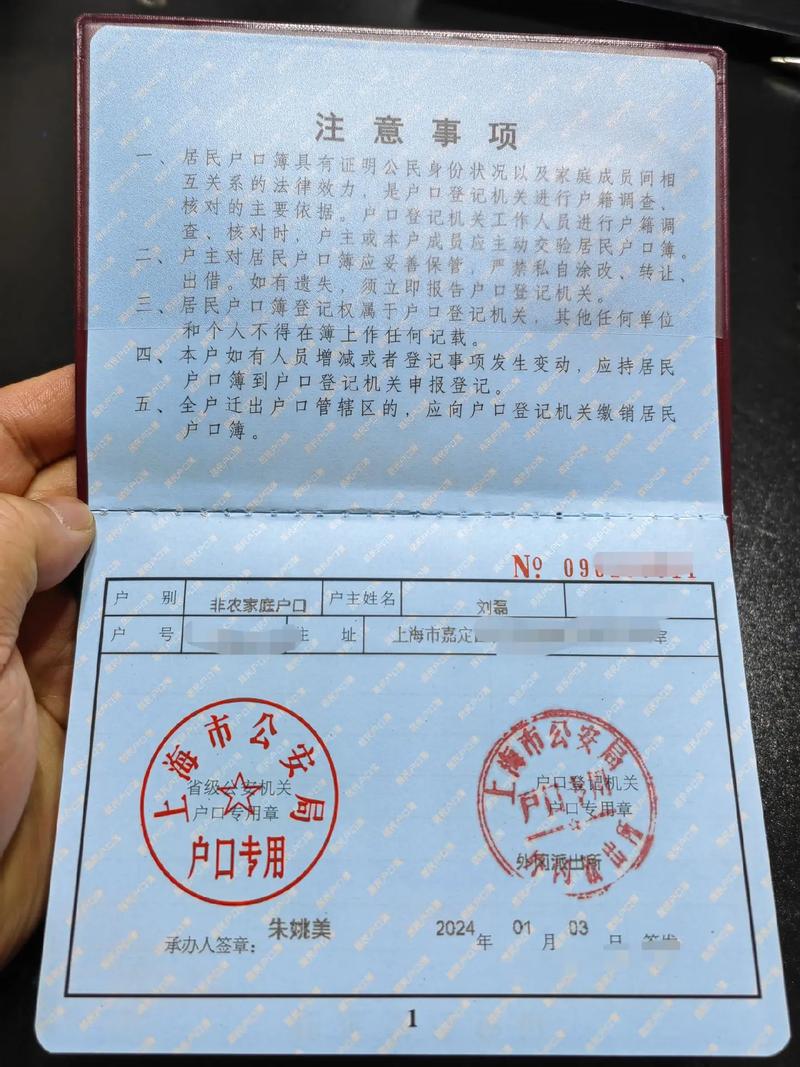 注意事项
一、居民户口簿具有证明公民身份状况以及家庭成员间相
互关系的法律效力，是户口登记机关进行户籍调查、
核对的主要依据。户口登记机关工作人员进行户籍调
查、核对时，户主或本户成员应主动交验居民户口簿。
二、户主对居民户口簿应妥善保管，严禁私自涂改、转让、
出借。如有遗失，须立即报告户口登记机关。
三、居民户口簿登记权属于户口登记机关，其他任何单位
和个人不得在簿上作任何记载。
四、本户如有人员增减或者登记事项发生变动，应持居民
户口簿到户口登记机关申报登记。
五、全户迁出户口管辖区的，应向户口登记机关缴销居民
户口簿。
No 09
户 别 非农家庭户口 户主姓名 刘磊
户 号 住 址 上海市嘉定 室
上海市公安局
省级公安机关
户口专用章
户口专用
上海市公安局
户口登记机关
户口专用章
户口专用
外冈派出所
承办人签章： 朱姚美
2024 年 01 月 03 日 签发
1